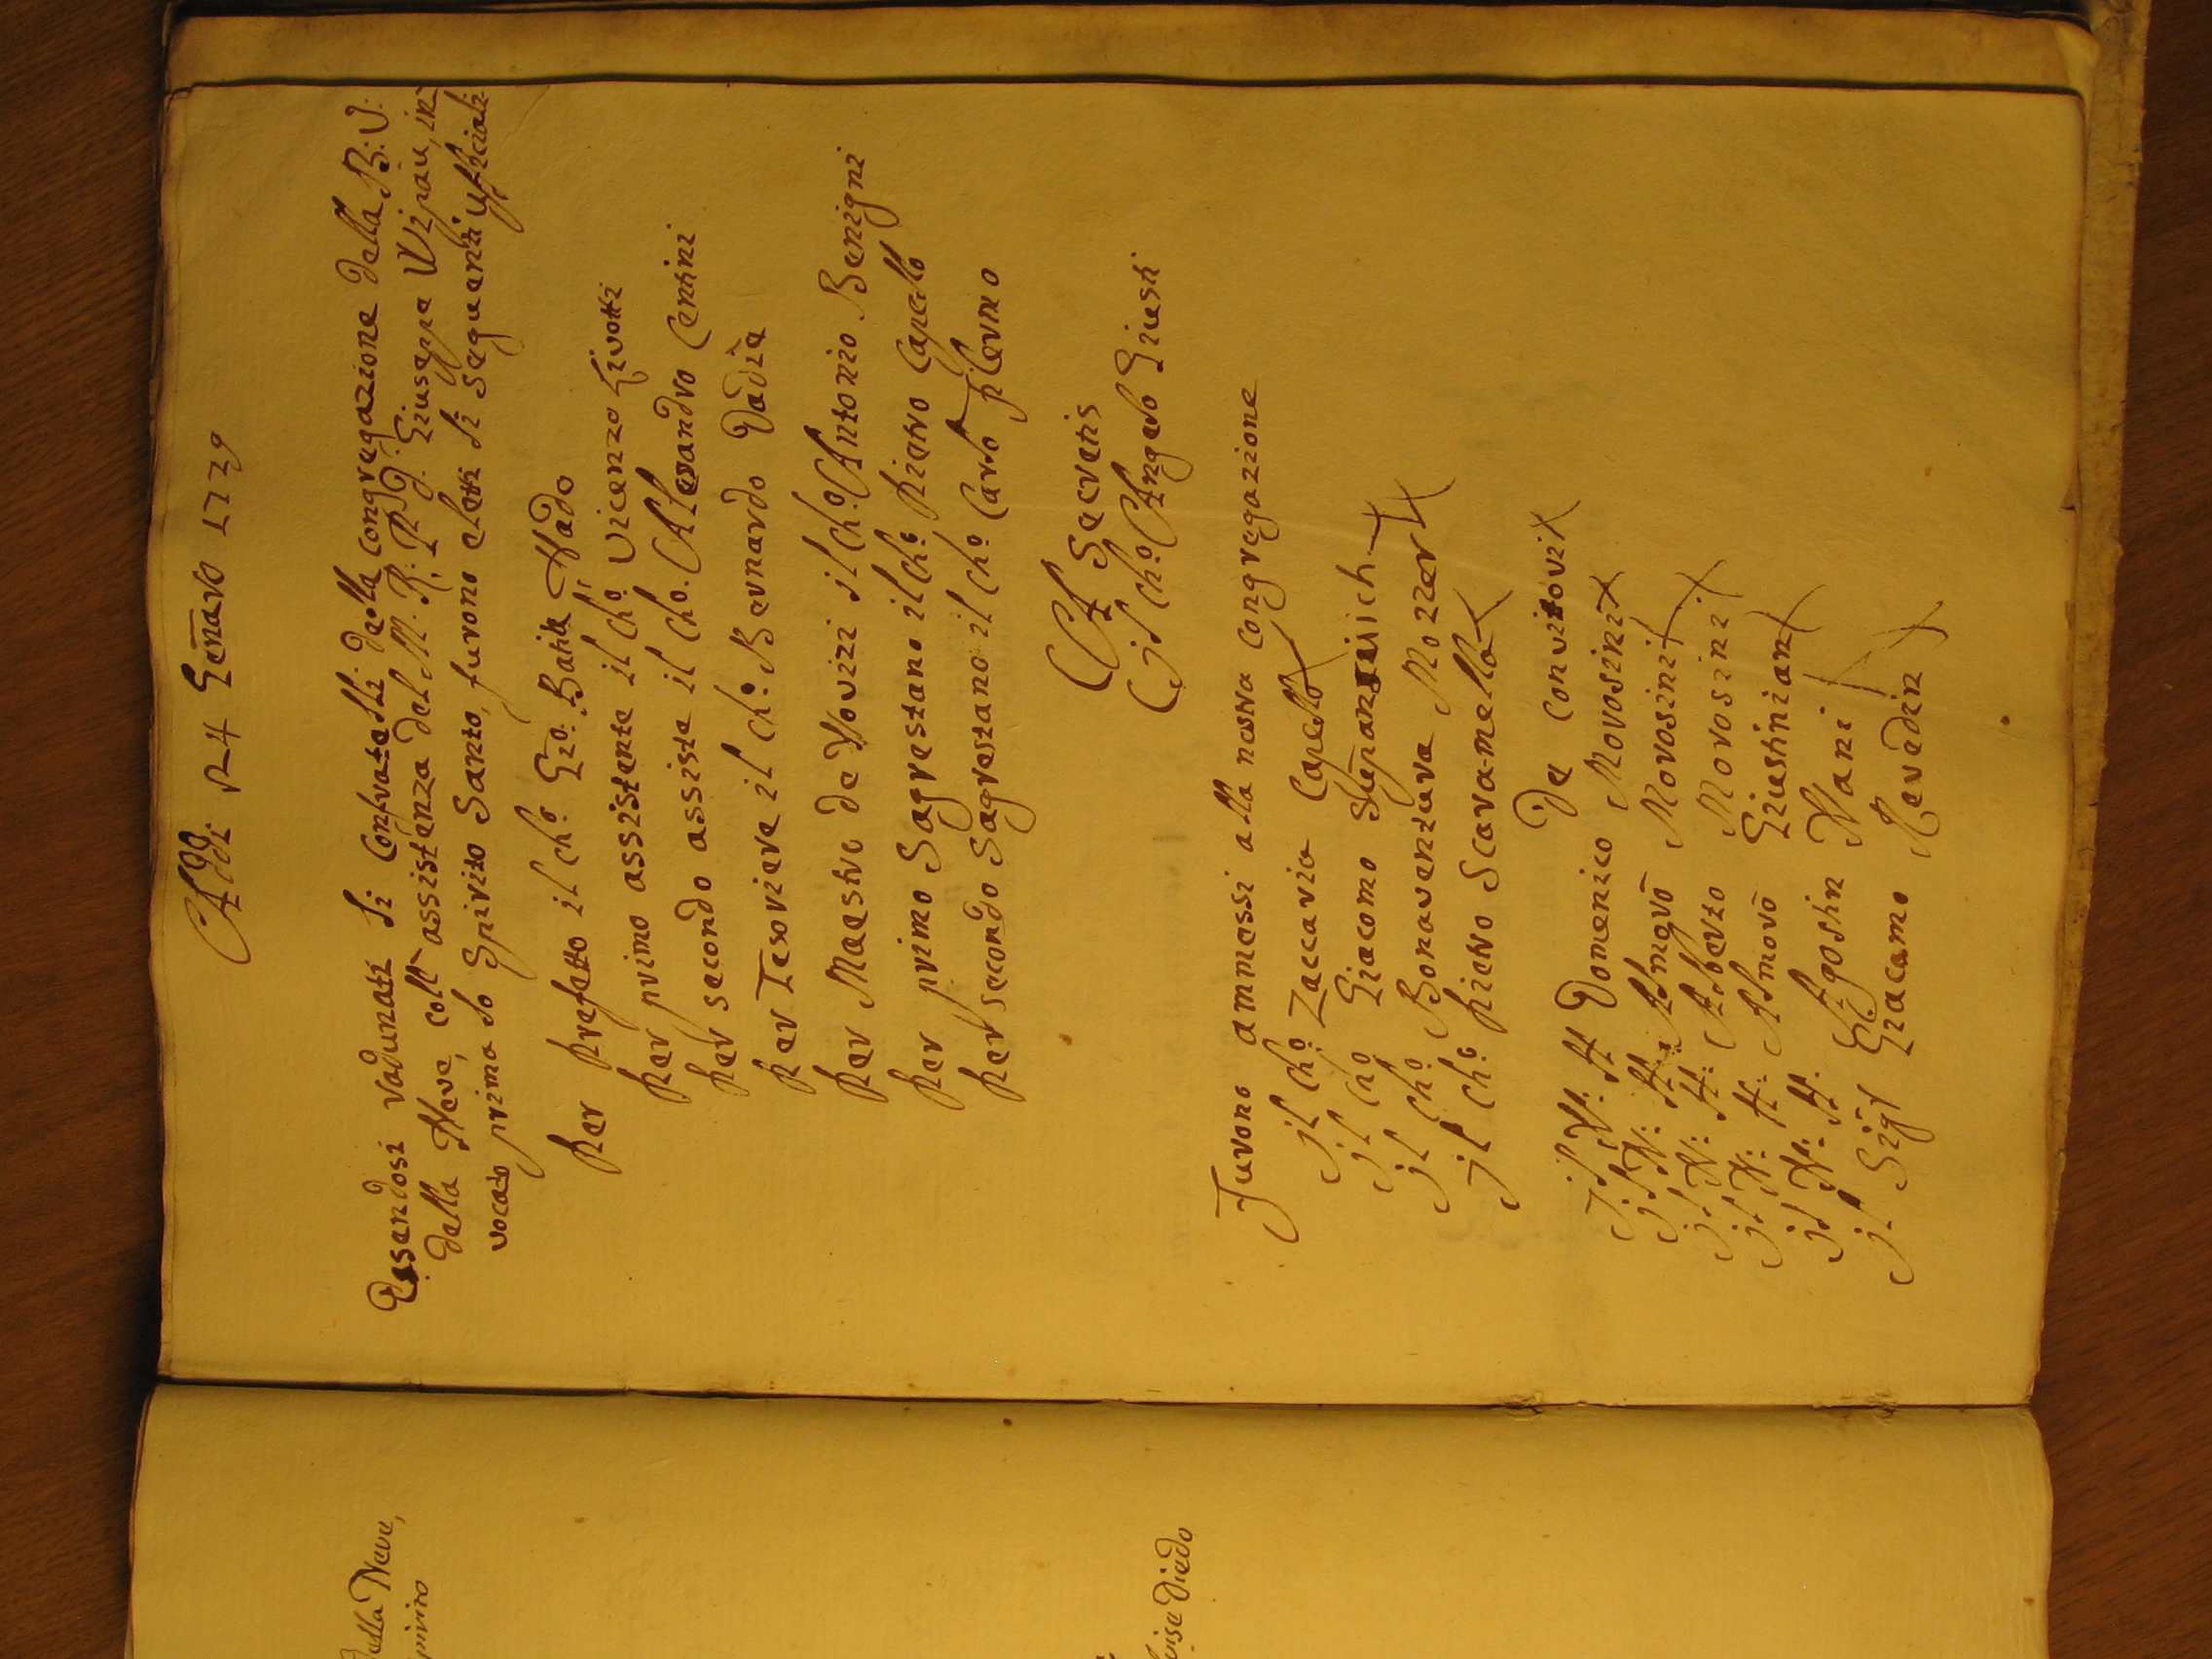 Addi 24 Genaro 1739
Essendosi radunati li Confratelli della Congregazione della B: V:
della Neve, coll' assistenza del M. R: P: D. Giuseppe Wipau, in
vocato prima lo Spirito Santo, furono eletti li seguenti ufficiali
Per Prefetto il ch.o Gio: Batta Nado
Per primo assistente il ch.o Vicenzo Livotti
Per secondo assiste il cho. Alesandro Centini
Per Tesoriere il ch.o Bernardo Dadia
Per Maestro de Novizzi il ch.o Antonio Benigni
Per primo Sagrestano il ch.o Pietro Capello
Per secondo Sagrestano il ch.o Carlo
A Secretis
Il ch.o Angelo Giusti
Furono ammessi alla nostra Congregazione
Il ch.o Zaccaria Capello
Il ch.o Giacomo
Il ch.o Bonaventura Mozzer
Il ch.o Pietro Scaramella
De Convitori
Il N: H Domenico Morosini
Il N: H: Almorò Morosini
Il N: H: Alberto Morosini
Il N: H: Almorò Giustinian
Il N: H: Agostin Nani
Il Sig.r Giacamo Neredin
della Neve,
pirito
vise Diedo